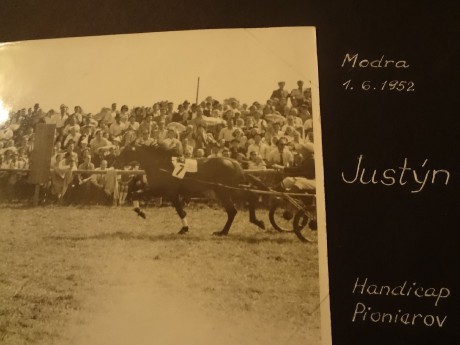 Modra
1. 6. 1952
Justýn
Handicap
Pionierov
7